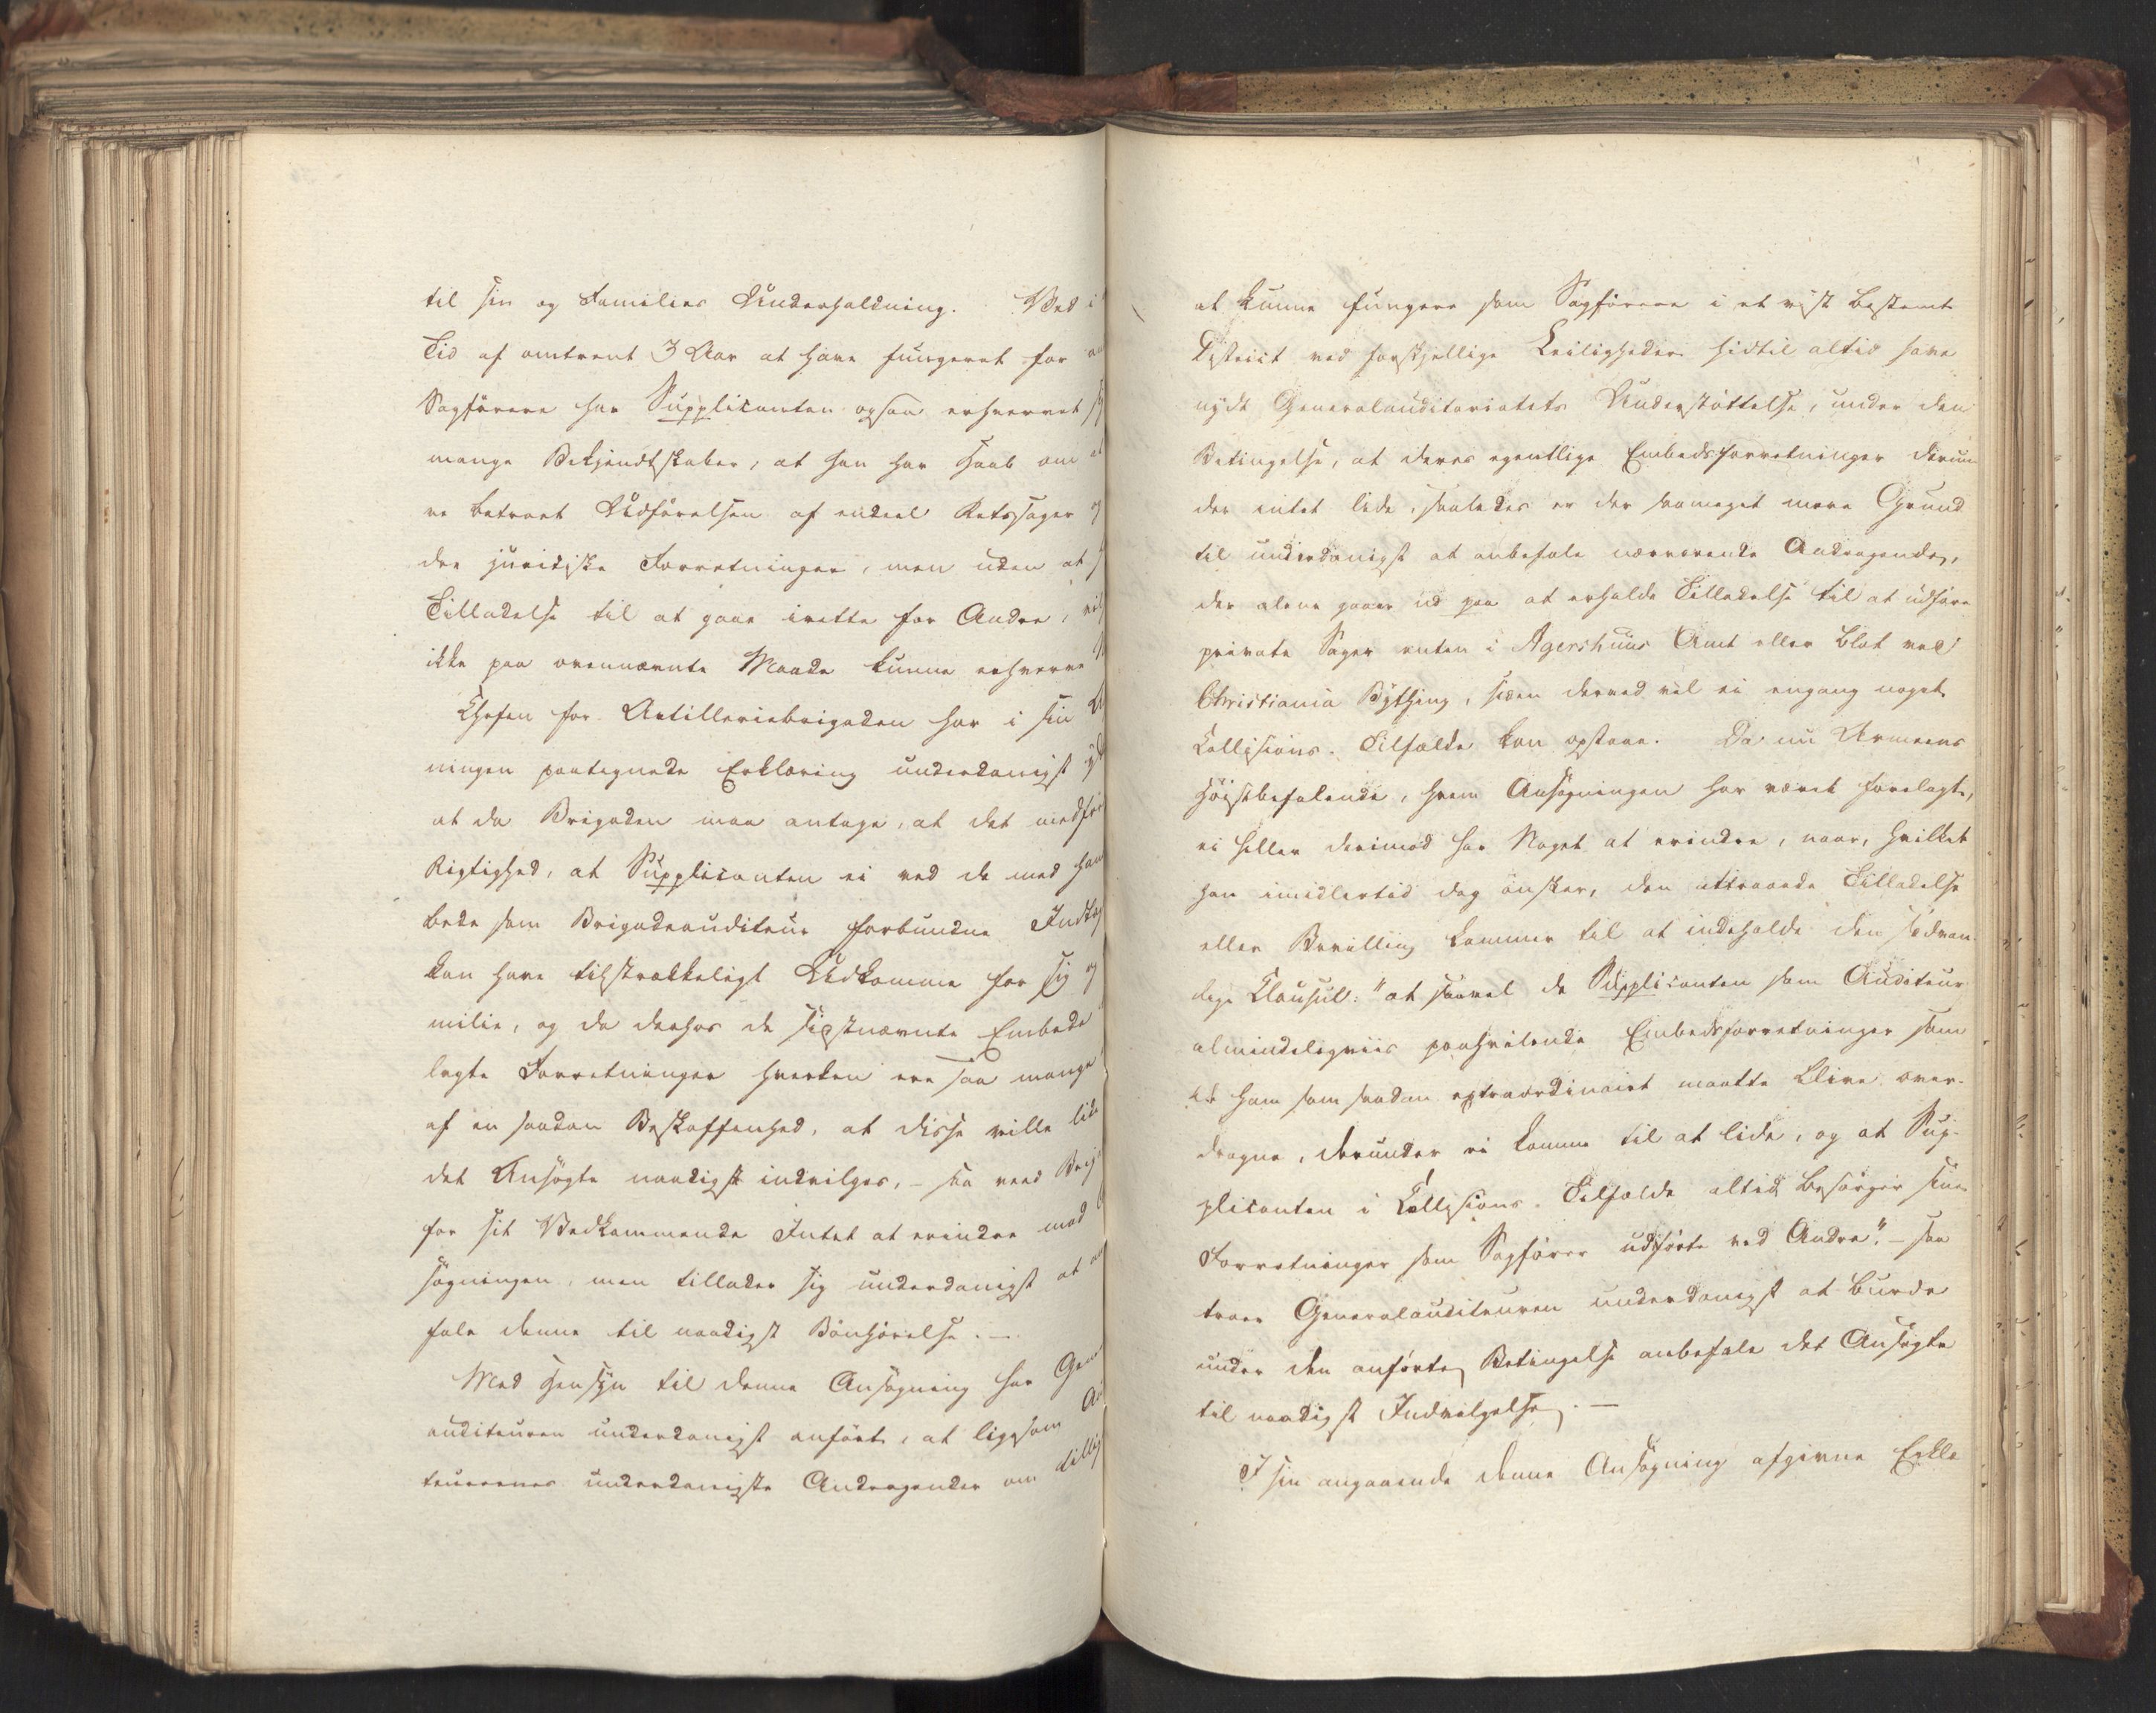 til sin og Families Underholdning. Ved i
Tid af omtrent 3 Aar at have fungeret for an
Sagførere har Supplicanten ogsaa erhvervet si
mange Bekjendtskaber, at han har Haab om at
ve betroet Udførelsen af endeel Retssager og
dre juridiske Forretninger, men uden at
Tilladelse til at gaae irette for Andre, vil
ikke paa ovennævnte Maade kunne erhverve
Chefen for Artilleriebrigaden har i sin
ningen paategnede Erklæring underdanigst
at da Brigaden maa antage, at det medfør
Rigtighed, at Supplicanten ei ved de med hans
bede som Brigadeauditeur forbundne Indtæg
kan have tilstrækkeligt Udkomme for sig og
milie, og da derhos de sidstnævnte Embede
lagte Forretninger hverken ere saa mange
af en saadan Beskaffenhed, at disse ville lide
det Ansøgte naadigst indvilges, - saa veed Brig
for sit Vedkommende Intet at erindre mod
søgningen, men tillader sig underdanigst at an
fale denne til naadigst Bønhørelse. -
Med Hensyn til denne Ansøgning har Gene
auditeuren underdanigst anført, at ligesom
teurernes underdanigste Andragender om
at kunne fungere som Sagførere i et vist bestemt
District ved forskjellige Leiligheder hidtil altid have
nydt Generalauditoriatets Understøttelse, under den
Betingelse, at deres egentlige Embedsforretninger derun
der intet lide, saaledes er der saameget mere Grund
til underdanigst at anbefale nærværende Andragende,
der alene gaaer ud paa at erholde Tilladelse til at udføre
private Sager enten i Agershuus Amt eller blot ved
Christiania Bything, siden derved vel ei engang noget
Collisions-Tilfælde kan opstaae. Da nu Armeens
Høistbefalende, hvem Ansøgningen har været forelagt,
ei heller derimod har Noget at erindre, naar, hvilket
han imidlertid dog ønsker, den attraaede Tilladelse
eller Bevilling kommer til at indeholde den sædvan
lige Clausul: "at saavel de Supplicanten som Auditeur
almindeligviis paahvilende Embedsforretninger som
de ham som saadan extraordinairt maatte blive over-
dragne, derunder ei komme til at lide, og at Sup-
plicanten i Collisions-Tilfælde altid besørger sine
Forretninger som Sagfører udførte ved Andre". - saa
troer Generalauditeuren underdanigst at burde
under den anførte Betingelse anbefale det Ansøgte
til naadigst Indvilgelse. -
I sin angaaende denne Ansøgning afgivne Erklæ